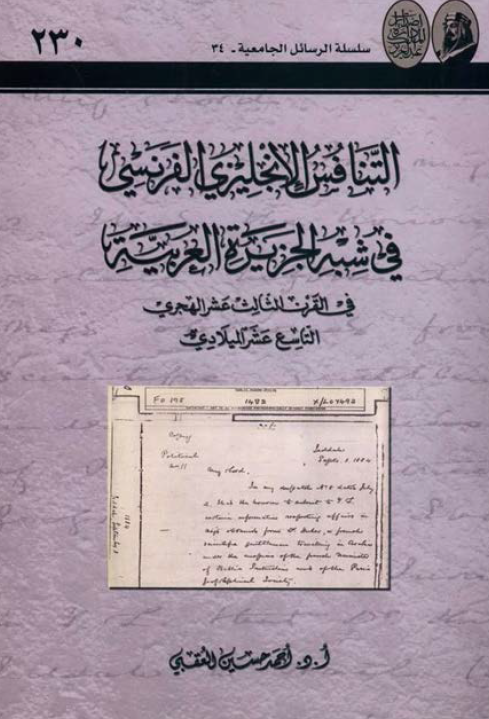 ٢٣٠
سلسلة الرسائل الجامعية - ٣٤
التنافس الإنجليزي الفرنسي
في شبه الجزيرة العربية
في القرن الثالث عشر الهجري
التاسع عشر الميلادي
FO 195
1482
Copy
Political
No 11
Jeddah
Septr. 1. 1884
My Lord,
In my despatch No 8 dated July
2, I had the honour to submit to Y. L.
certain information respecting affairs in
Nejd obtained from Dr Huber, a french
scientific gentleman travelling in Arabia
under the auspices of the french Ministry
of Public Instruction and of the Paris
Geographical Society.
أ. د. أحمد حسين العقبي